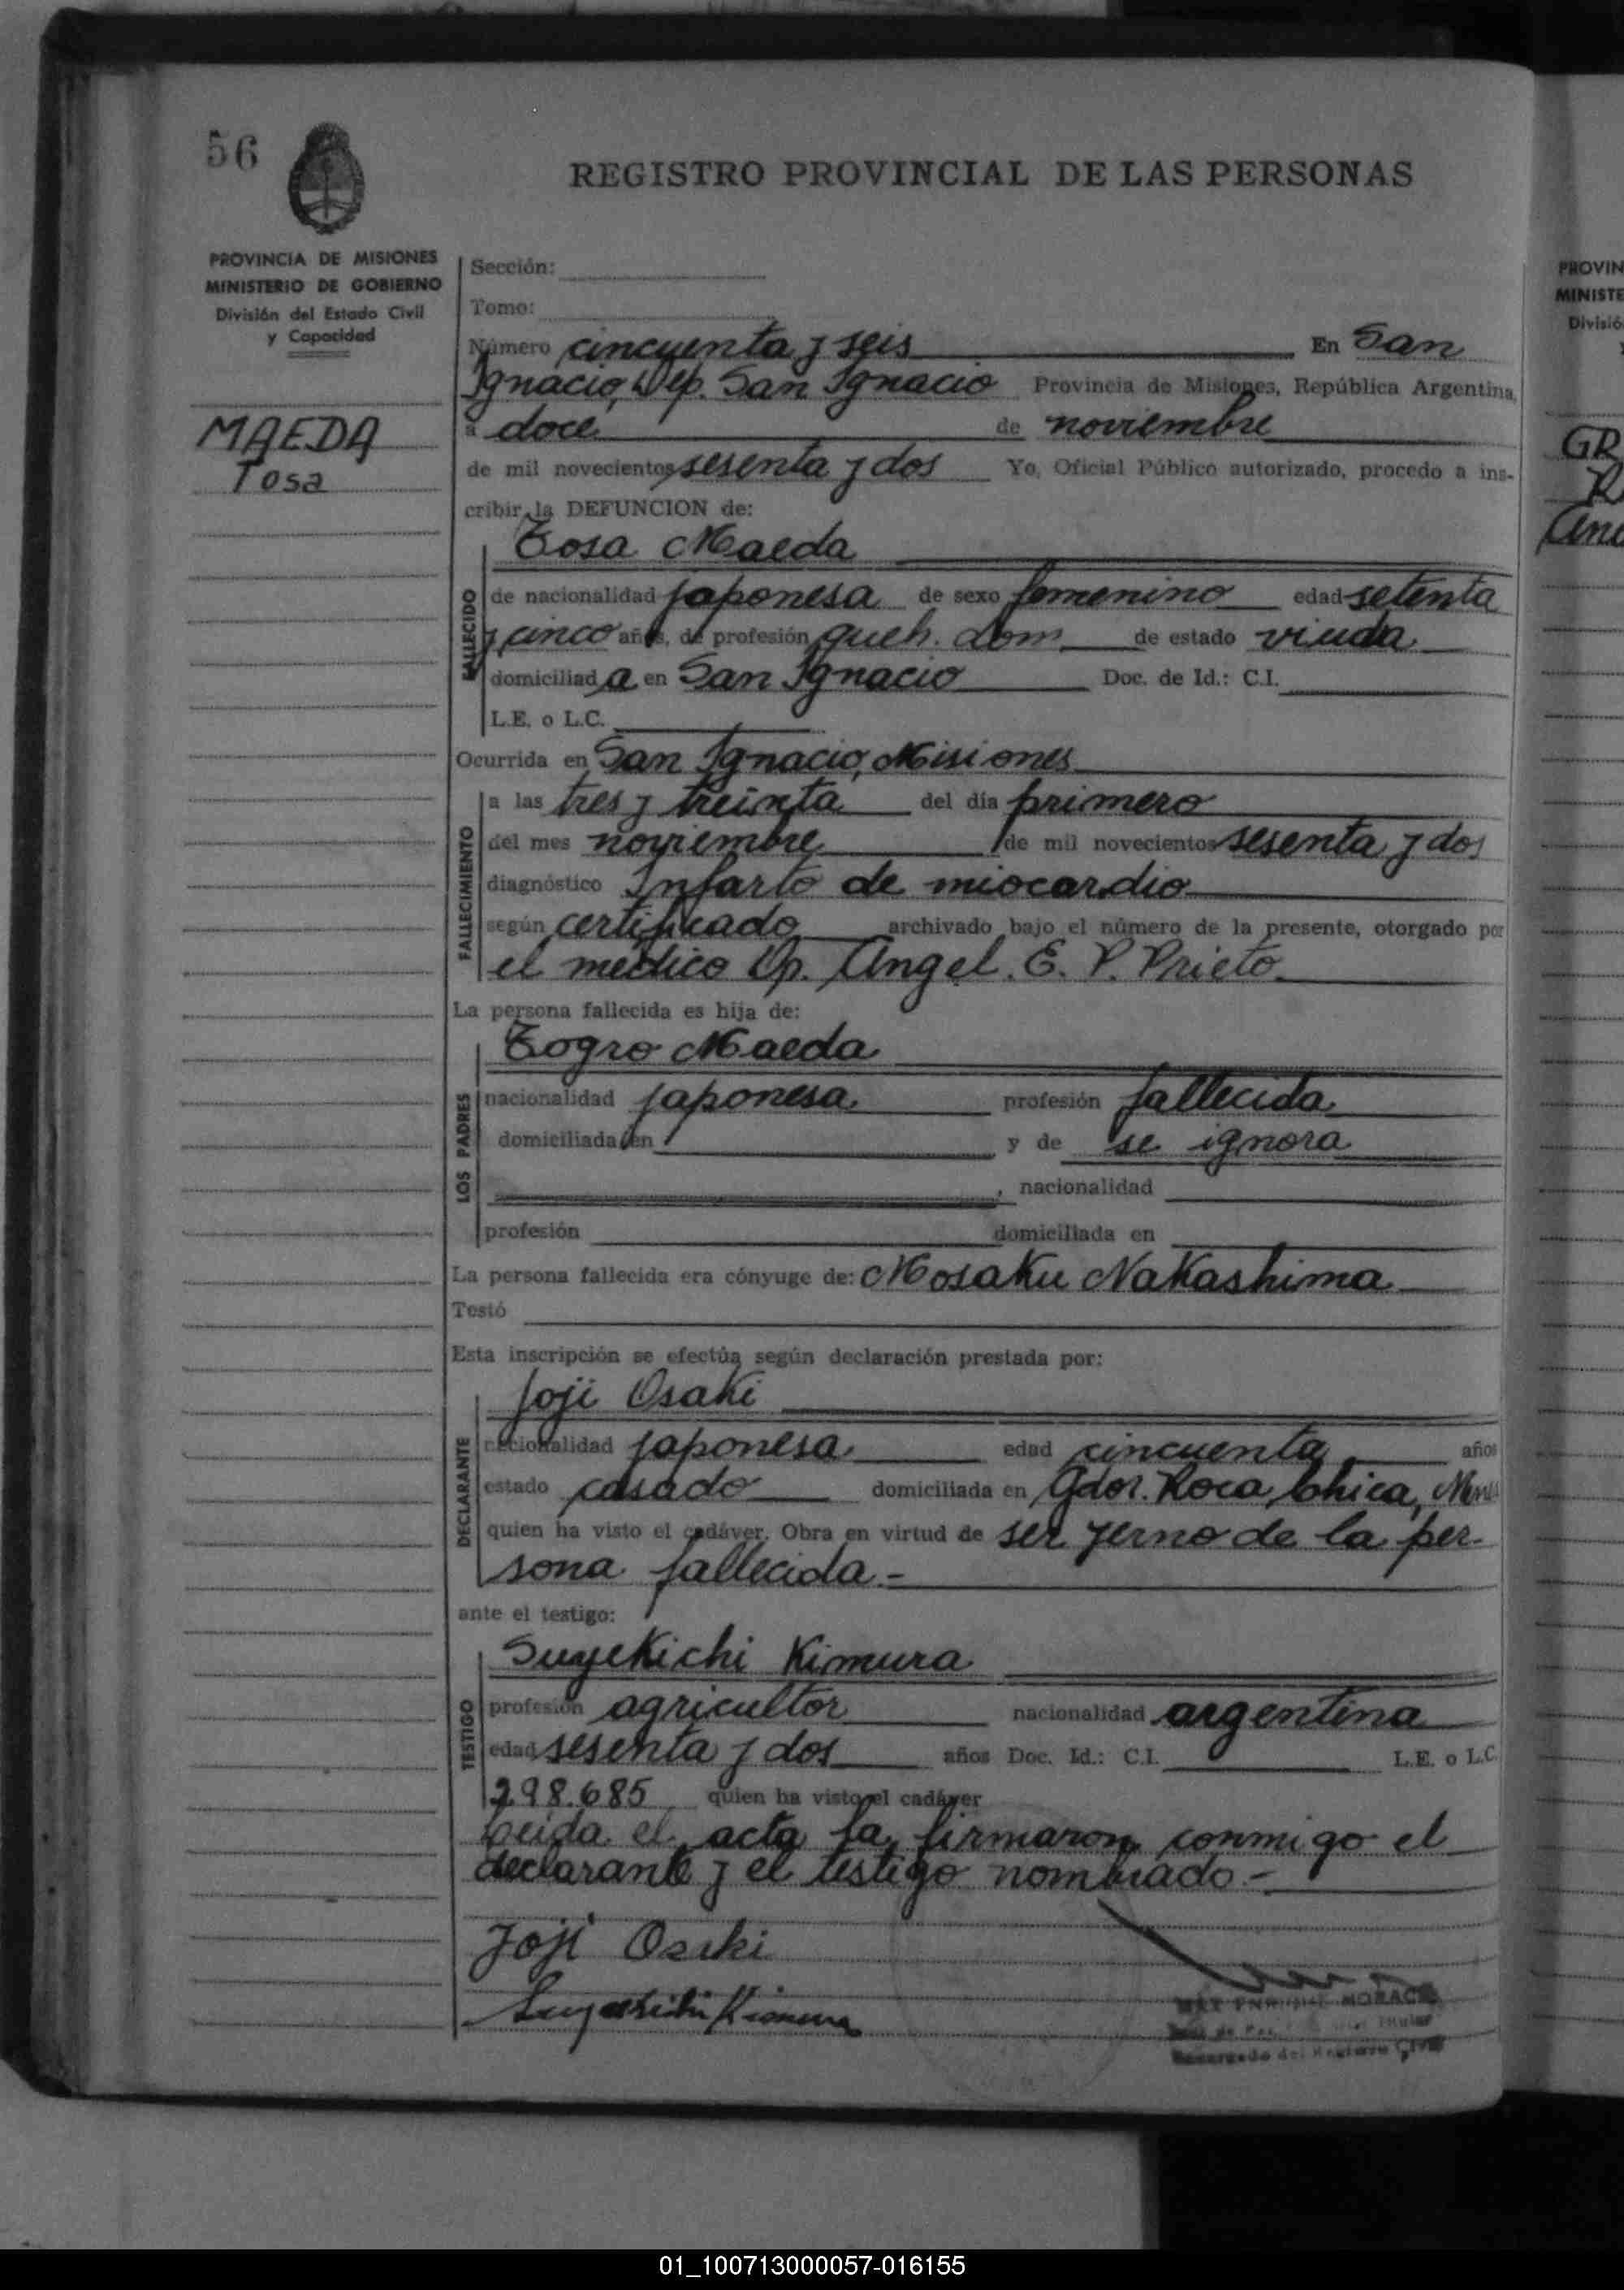 56
REGISTRO PROVINCIAL DE LAS PERSONAS
PROVINCIA DE MISIONES
MINISTERIO DE GOBIERNO
División del Estado Civil
y Capacidad
MAEDA
Tosa
Sección:
Tomo:
Número cincuenta y seis En San
Ignacio, Dep. San Ignacio Provincia de Misiones, República Argentina,
a doce de noviembre
de mil novecientos sesenta y dos Yo, Oficial Público autorizado, procedo a ins-
cribir la DEFUNCION de:
FALLECIDO
Tosa Maeda
de nacionalidad japonesa de sexo femenino edad setenta
y cinco años, de profesión queh. dom. de estado viuda
domiciliada en San Ignacio Doc. de Id.: C.I.
L.E. o L.C.
Ocurrida en San Ignacio, Misiones
FALLECIMIENTO
a las tres y treinta del día primero
del mes noviembre de mil novecientos sesenta y dos
diagnóstico Infarto de miocardio
según certificado archivado bajo el número de la presente, otorgado por
el médico Angel. E. P. Prieto
La persona fallecida es hija de:
LOS PADRES
Togro Maeda
nacionalidad japonesa profesión fallecida
domiciliada en y de se ignora
, nacionalidad
profesión domiciliada en
La persona fallecida era cónyuge de: Mosaku Nakashima
Testó
Esta inscripción se efectúa según declaración prestada por:
DECLARANTE
Joji Osaki
nacionalidad japonesa edad cincuenta años
estado casado domiciliada en Gdor. Roca, Chica,
quien ha visto el cadáver. Obra en virtud de ser yerno de la per-
sona fallecida.-
ante el testigo:
TESTIGO
Suyekichi Kimura
profesión agricultor nacionalidad argentina
edad sesenta y dos años Doc. Id.: C.I. L.E. o L.C.
298.685 quien ha visto el cadáver
Leida el acta la firmaron conmigo el
declarante y el testigo nombrado.-
Joji Osaki
Suyekichi Kimura
Encargado del Registro Civil
PROVIN
MINISTE
Divisió
GR
01_100713000057-016155